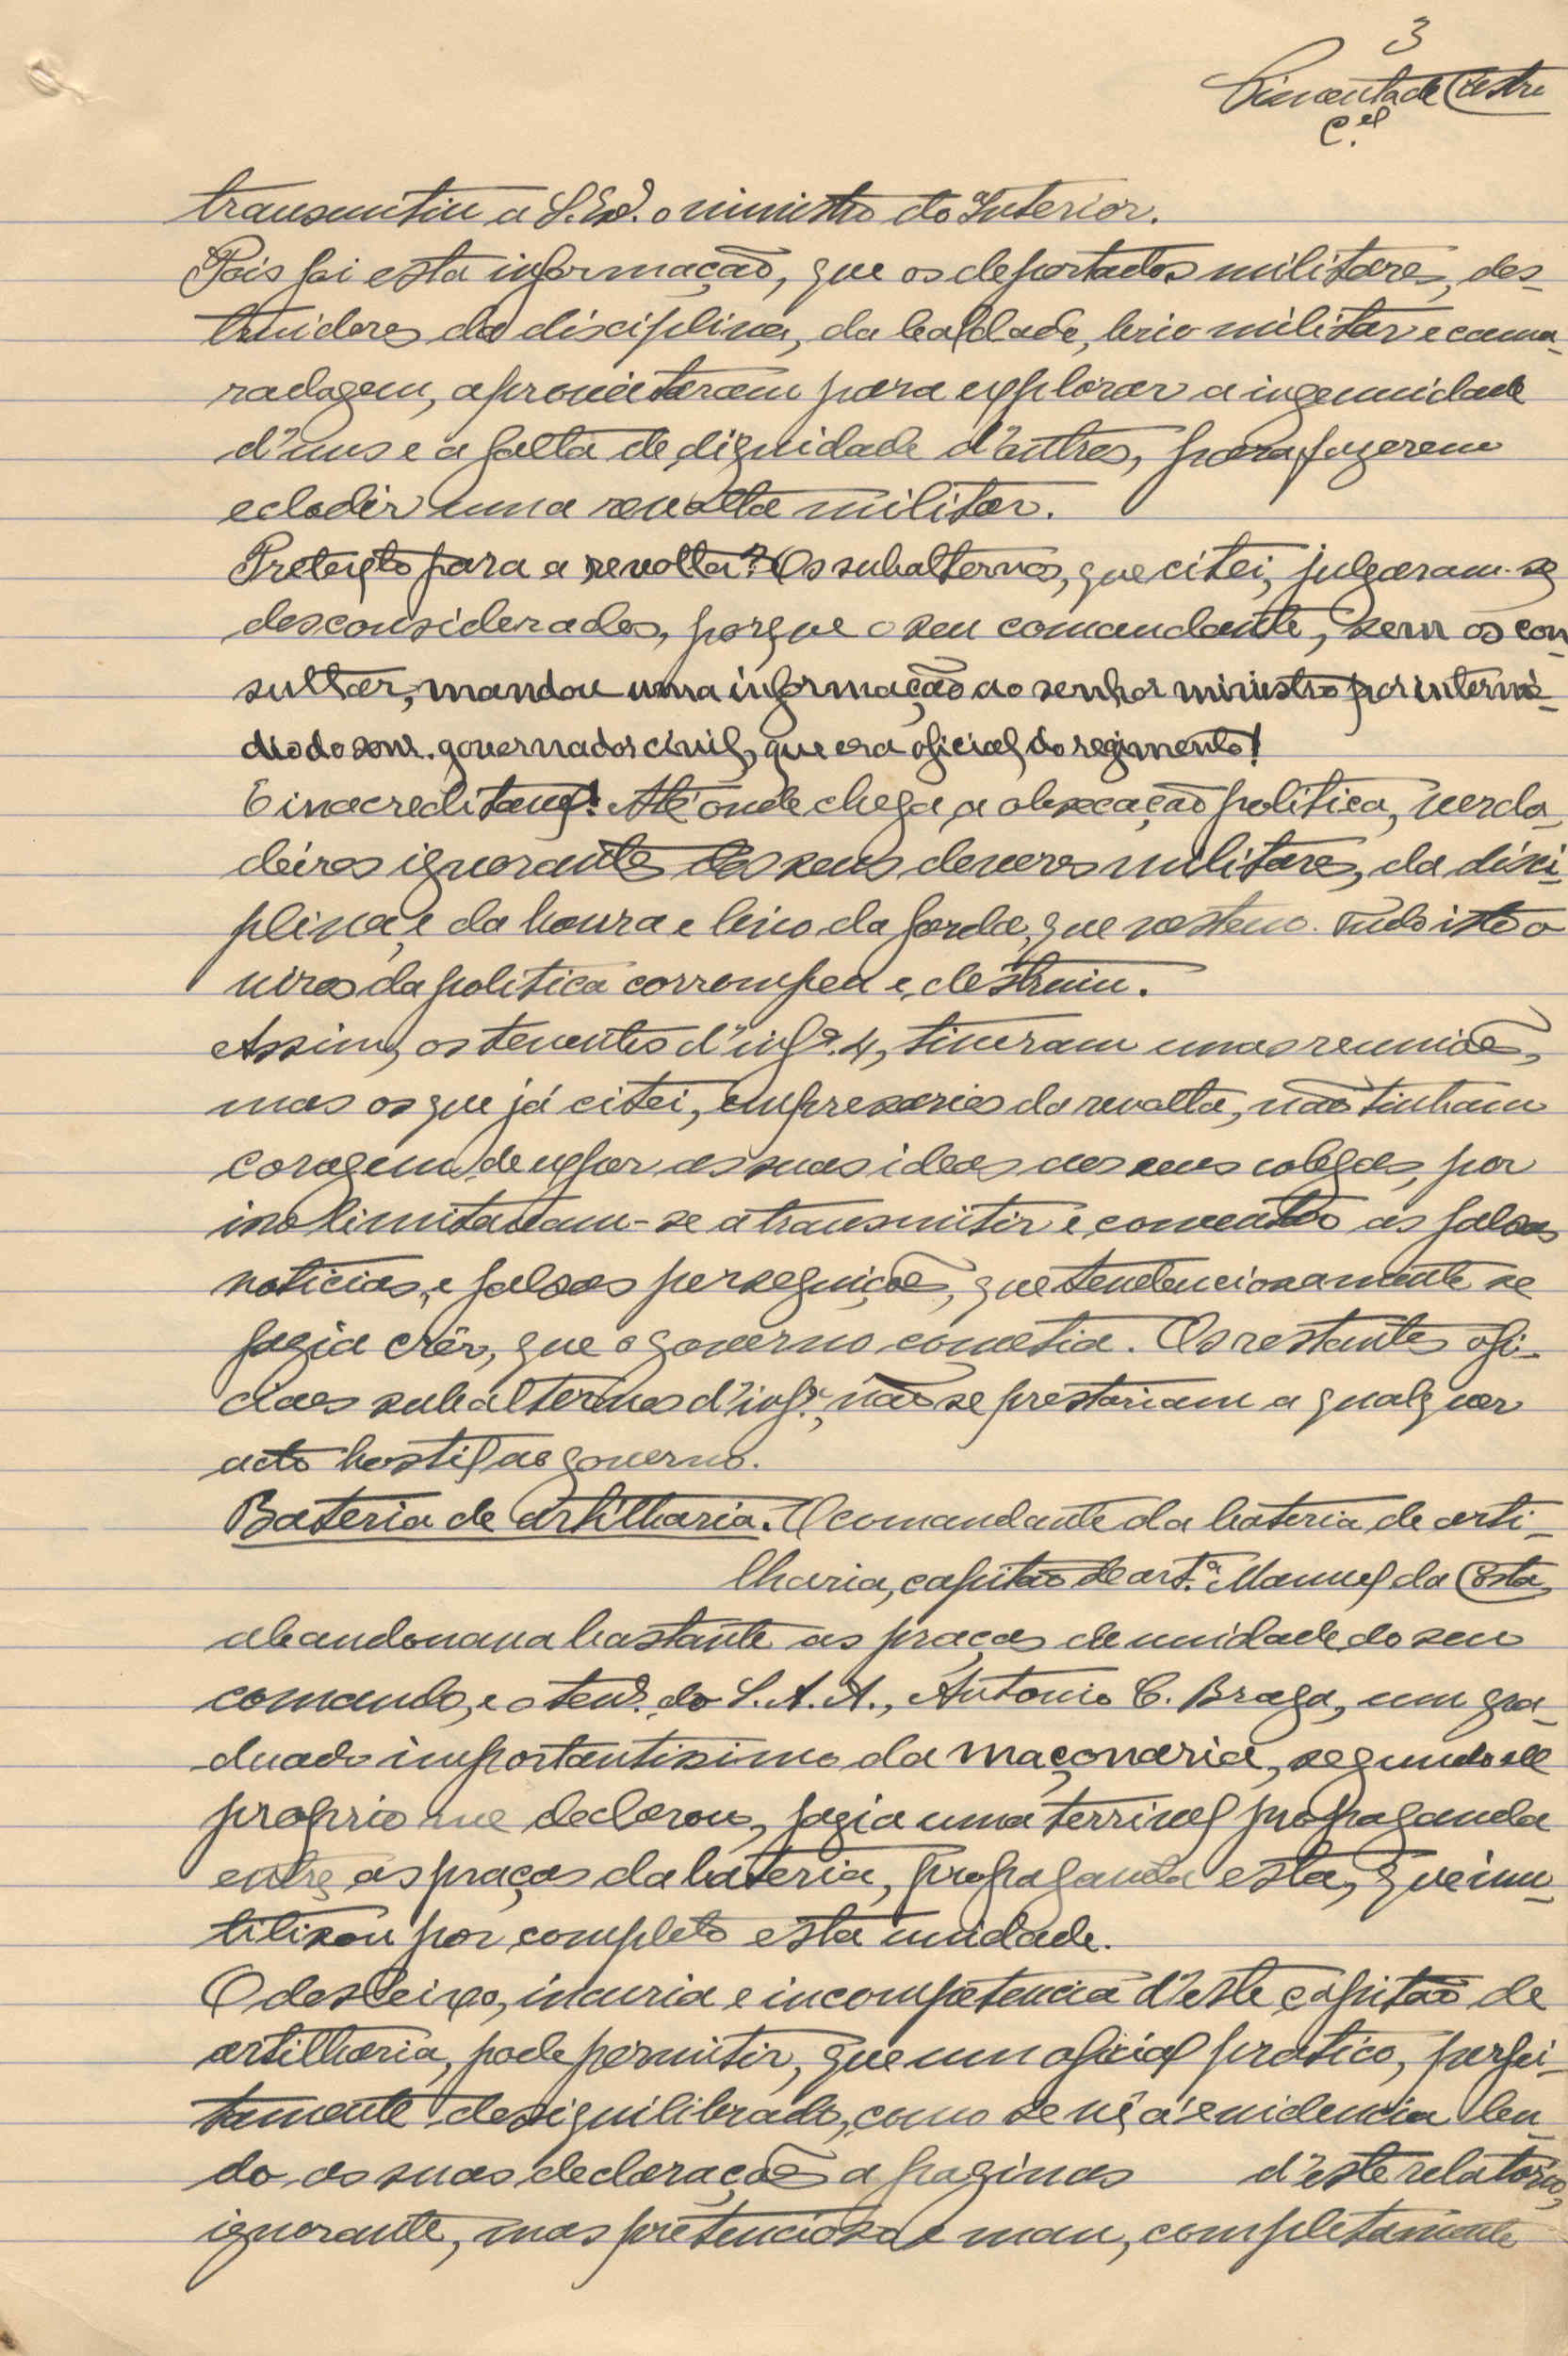 3
Pimenta de Castro
C.el
transmitiu a S. Ex.ª o ministro do Interior.
Pois foi esta informação, que os deportados militares, des-
truidores da disciplina, da lealdade, brio militar e cama-
radagem, aproveitaram para explorar a ingenuidade
d'uns e a falta de dignidade d'outros, para fazerem
eclodir uma revolta militar.
Pretexto para a revolta? Os subalternos, que citei, julgaram-se
desconsiderados, porque o seu comandante, sem os con-
sultar, mandou uma informação ao senhor ministro por intermé-
dio do snr. governador civil, que era oficial do regimento!
É inacreditavel! Até onde chega a obsecação politica, verda-
deiros ignorantes dos seus deveres militares, da disci-
plina, e da honra e brio da farda, que vestem. Tudo isto o
virus da politica corrompeu e, destruiu.
Assim, os tenentes d'inf.ª 4, tiveram umas reuniões,
mas os que já citei, empresarios da revolta, não tinham
coragem de expor as suas ideas aos seus colegas, por
isso limitavam-se a transmitir e, comentar as falsas
noticias, e falsas perseguições, que tendenciosamente se
fazia crêr, que o governo cometia. Os restantes ofi-
ciaes subalternos d'inf.ª, não se prestariam a qualquer
acto hostil ao governo.
Bateria de Artilharia. O comandante da bateria de arti-
lharia, capitão de art.ª Manuel da Costa,
abandonava bastante as praças da unidade do seu
comando, e o ten.e do S. A. A., Antonio C. Braga, um gra-
duado importantissimo da maçonaria, segundo ele
proprio me declarou, fazia uma terrivel propaganda
entre as praças da bateria, propaganda esta, que inu-
tilisou por completo esta unidade.
O desleixo, incuria e incompetencia d'este capitão de
artilharia, pode permitir, que um oficial pratico, perfei-
tamente desiquilibrado, como se vê á evidencia len-
do as suas declarações a paginas d'este relatorio,
ignorante, mas pretencioso e mau, completamente